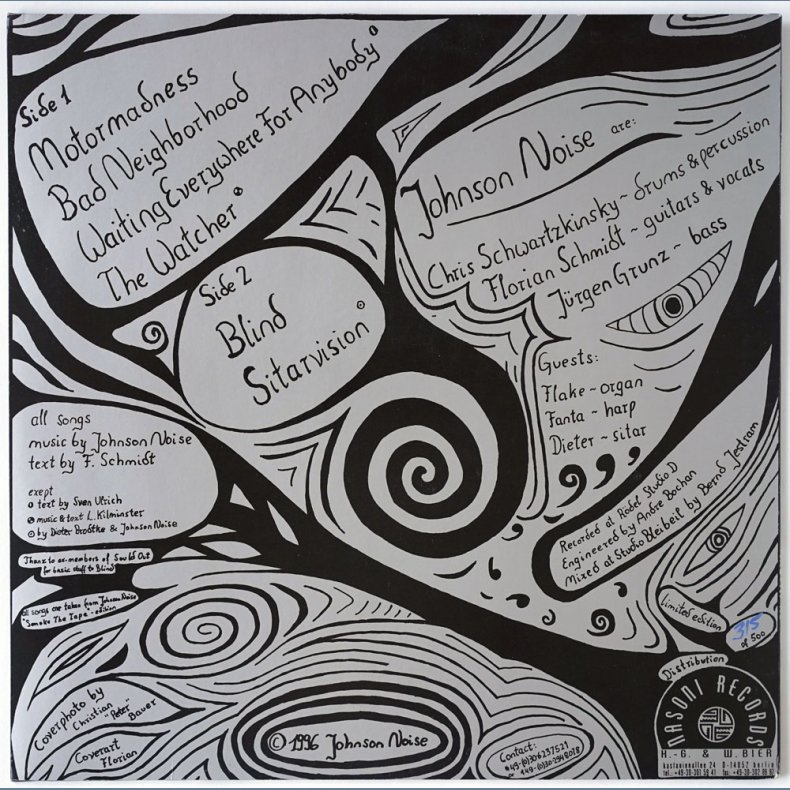 Side 1
Motormadness
Bad Neighborhood
Waiting Everywhere For Anybody
The Watcher
Side 2
Blind
Sitarvision
Johnson Noise are:
Chris Schwartzkinsky ~ drums & percussion
Florian Schmidt ~ guitars & vocals
Jürgen Grunz ~ bass
Guests:
Flake ~ organ
Fanta ~ harp
Dieter ~ sitar
all songs
music by Johnson Noise
text by F. Schmidt
exept
text by Sven Ulrich
music & text L. Kilminster
by Dieter & Johnson Noise
Thanx to ex-members of Sould Out
for basic stuff to Blind
all songs are taken from Johnson Noise
"Smoke The Tape" - edition
Recorded at Rödel Studio D
Engineered by Andre Bochan
Mixed at Studio Bleibeil by Bernd Jestram
limited edition
315
of 500
Distribution
NASONI RECORDS
H.-G. & W. BIER
kastanienallee 24 D-14052 berlin
Coverphoto by
Christian "Peter" Bauer
Coverart
Florian
© 1996 Johnson Noise
Contact:
+49-(0)306237521
or +49-(0)30-2948028